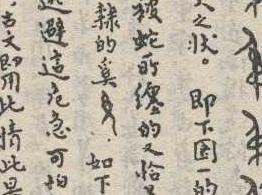 之狀。即下圖一的
被蛇所纏的又恰
隸的奚 如下
避這危急可怕
古文即用此情此景